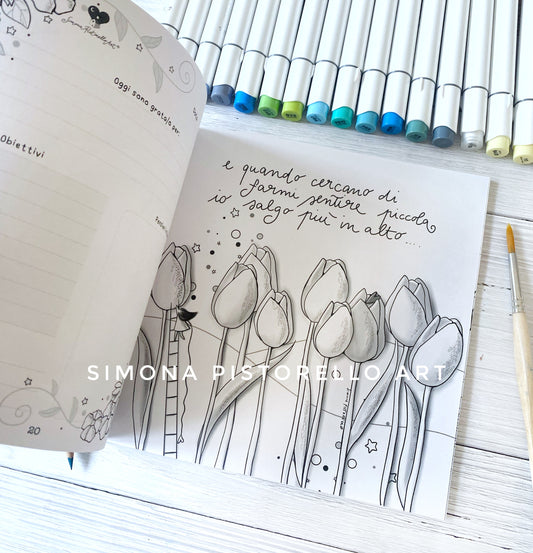 Simona Pistorello Art
Oggi sono grata/o per
Obiettivi
20
e quando cercano di
farmi sentire piccola
io salgo più in alto....
SIMONA PISTORELLO ART